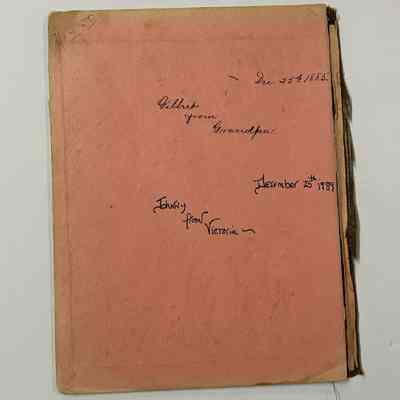 Dec 25th 1885.
from
Grandpa.
December 25th 1989
Johnny
from
Victoria